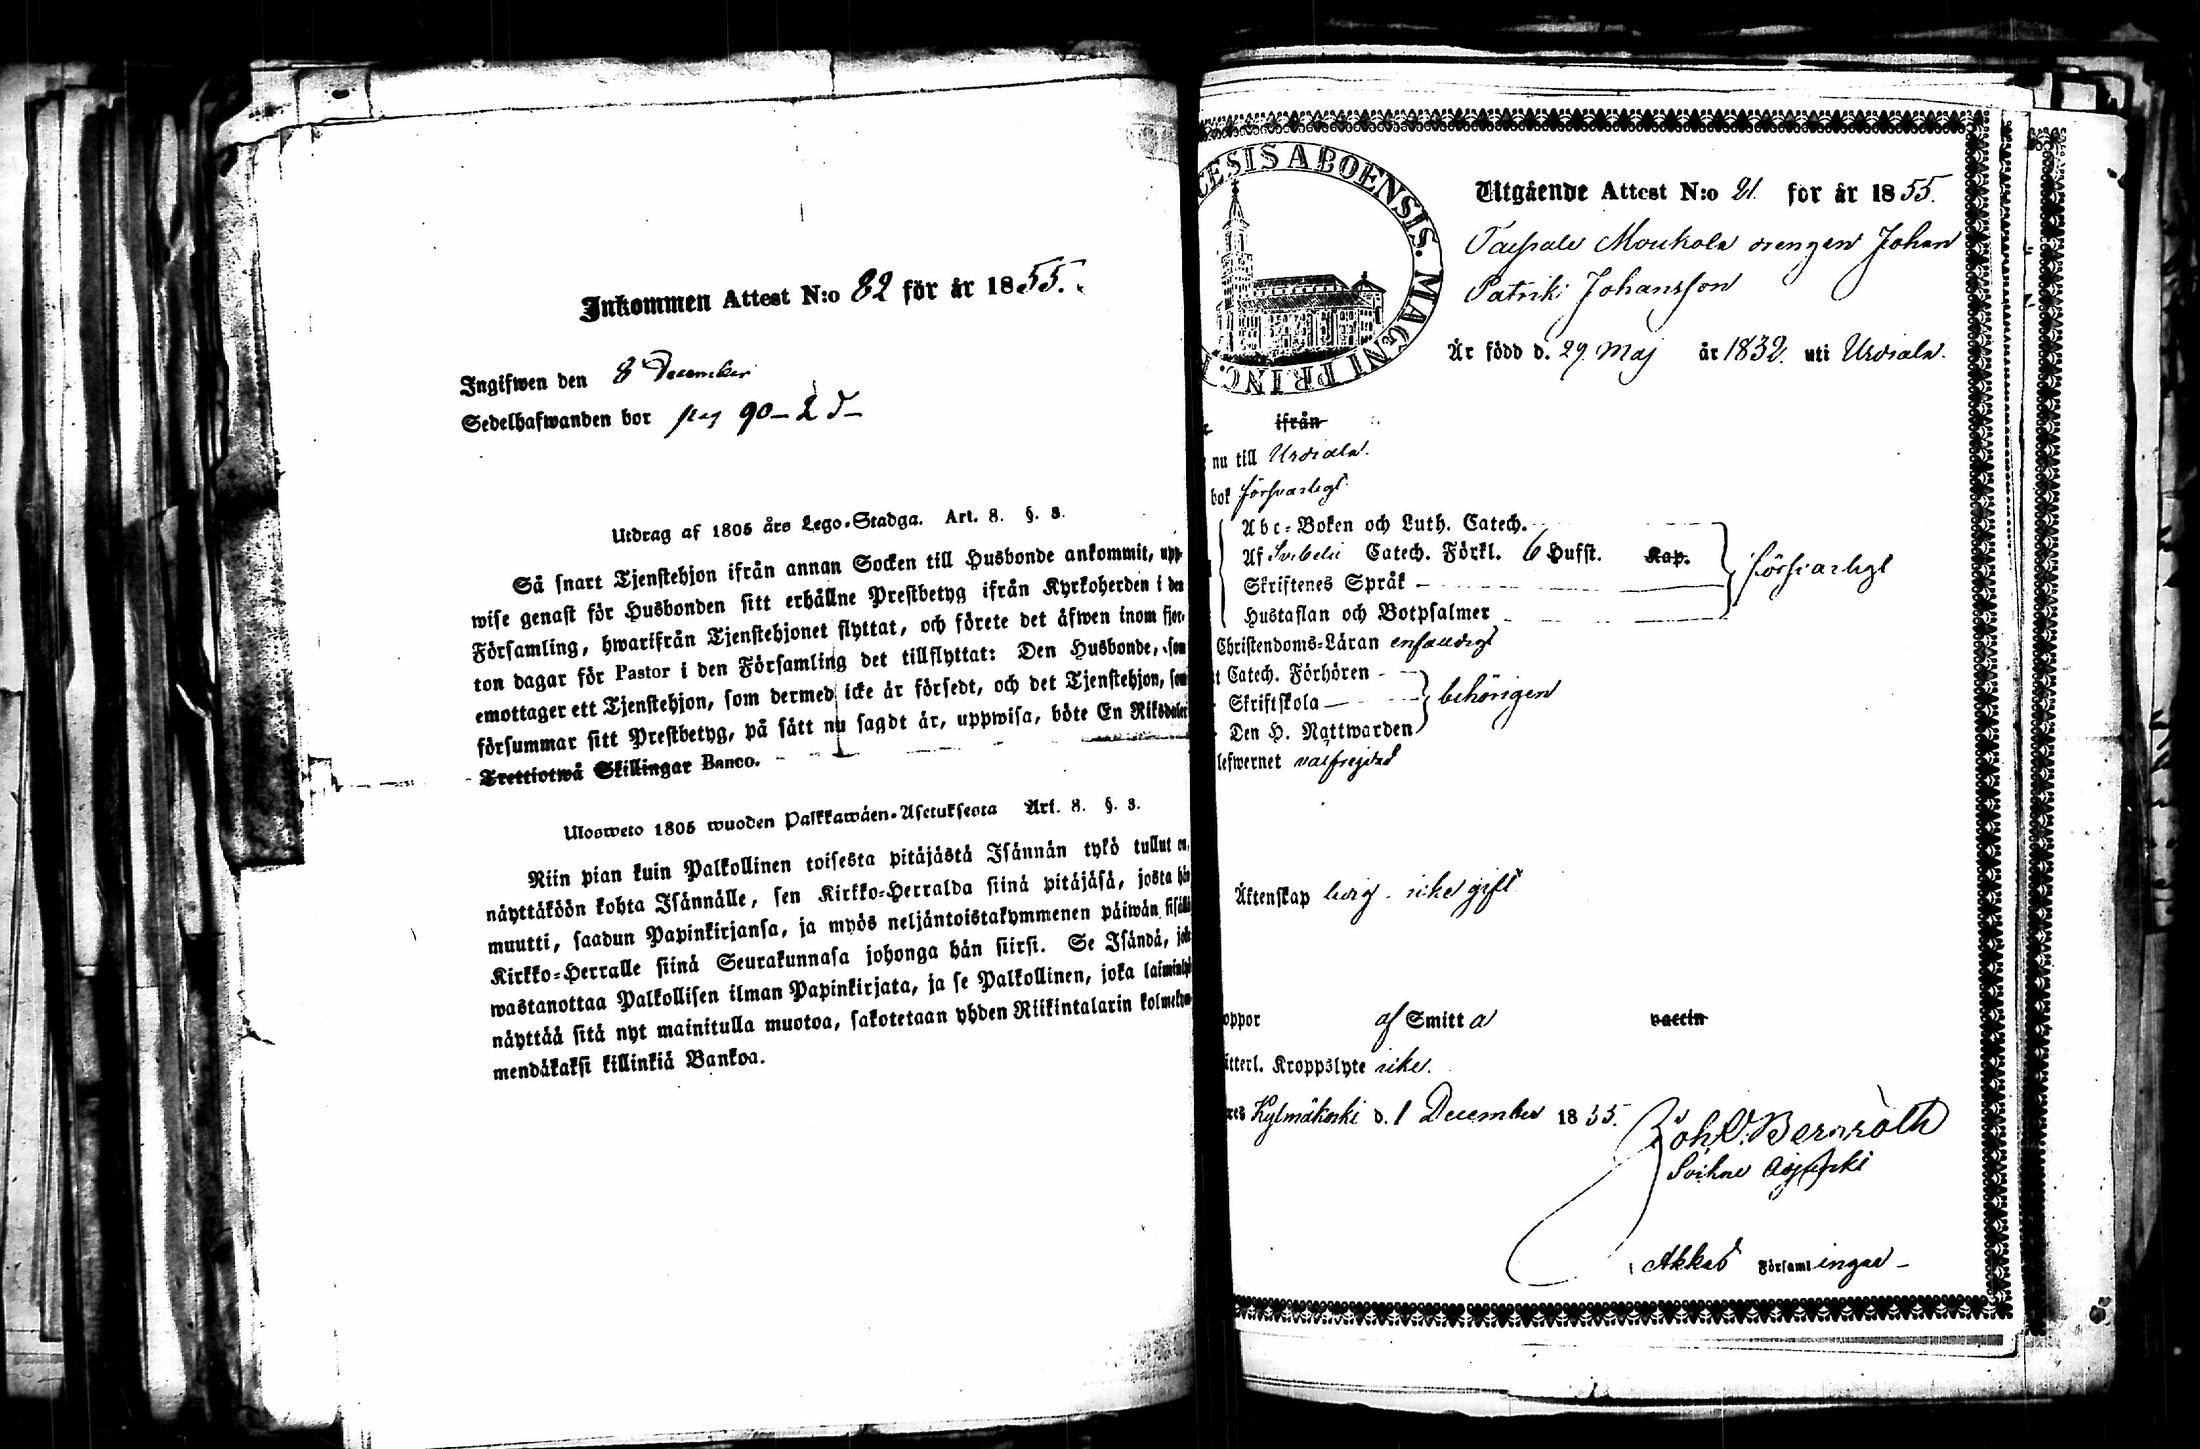 Inkommen Attest N:o 82 för år 1855.
Ingifwen den 8 December
Sedelhafwanden bor pag 90 – 2 d –
Utdrag af 1805 års Lego-Stadga. Art. 8. §. 3.
Så snart Tjenstehjon ifrån annan Socken till Husbonde ankommit, upp-
wise genast för Husbonden sitt erhållne Prestbetyg ifrån Kyrkoherden i den
Församling, hwarifrån Tjenstehjonet flyttat, och förete det äfwen inom fjor-
ton dagar för Pastor i den Församling det tillflyttat: Den Husbonde, som
emottager ett Tjenstehjon, som dermed icke är försedt, och det Tjenstehjon, som
försummar sitt Prestbetyg, på sätt nu sagdt är, uppwisa, böte En Riksdaler
Trettiotwå Skillingar Banco.
Ulosweto 1805 wuoden Palkkawäen-Asetuksesta Art. 8. §. 3.
Niin pian kuin Palkollinen toisesta pitäjästä Isännän tykö tullut on,
näyttäköön kohta Isännälle, sen Kirkko-Herralda siinä pitäjäsä, josta hän
muutti, saadun Papinkirjansa, ja myös neljäntoistakymmenen päiwän sisällä
Kirkko-Herralle siinä Seurakunnasa johonga hän siirsi. Se Isändä, joka
wastanottaa Palkollisen ilman Papinkirjata, ja se Palkollinen, joka laiminlyö
näyttää sitä nyt mainitulla muotoa, sakotetaan yhden Riikintalarin kolmekym-
mendäkaksi killinkiä Bankoa.
CESIS ABOENSIS. MAGNI PRINC.
Utgående Attest N:o 21 for år 1855.
Taipale Moukola drengen Johan
Patrik Johansson
Är född d. 29. Maj år 1832. uti Urdiala.
ifrån
nu till Urdiala.
bok försvarligt
Abc-Boken och Luth. Catech.
Af Svebelii Catech. Förkl. 6 Hufst. Kap.
Skriftenes Språk
Hustaflan och Botpsalmer
försvarligt
Christendoms-Läran enfaldigt
Catech. Förhören
Skriftskola
Den H. Nattwarden
behörigen
lefwernet välfrejdad
Äktenskap ledig. icke gift
oppor af Smitta vaccin
itterl. Kroppslyte icke.
Kylmäkoski d. 1 December 1855.
Joh. V. Bernroth
Akkas Församlingar –